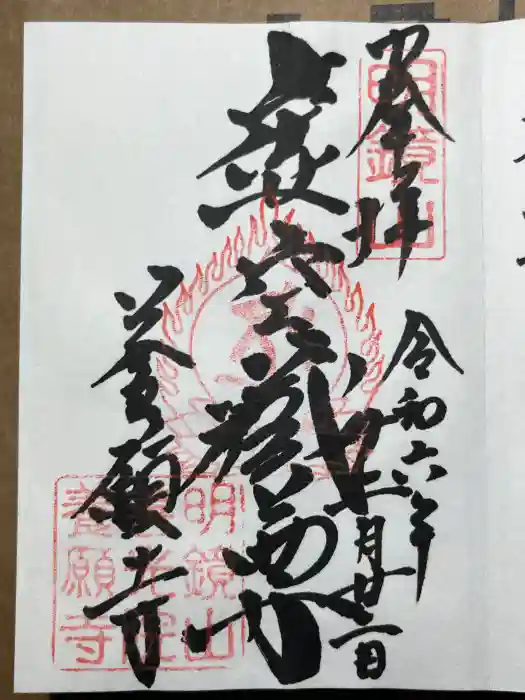 奉拝
明鏡山
令和六年十二月廿二日
虚空蔵菩薩
養願寺
明鏡山
善光院
養願寺